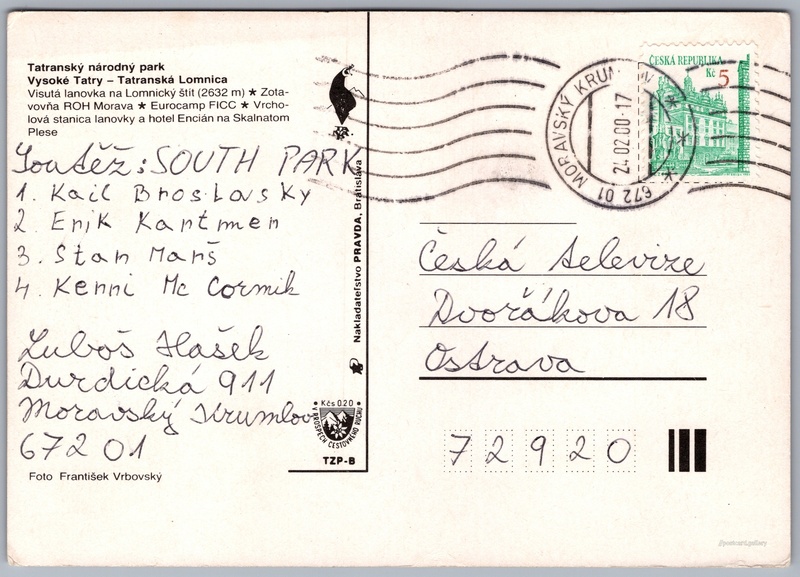 Tatranský národný park
Vysoké Tatry – Tatranská Lomnica
Visutá lanovka na Lomnický štít (2632 m) ★ Zota-
vovňa ROH Morava ★ Eurocamp FICC ★ Vrcho-
lová stanica lanovky a hotel Encián na Skalnatom
Plese
Soutěž: SOUTH PARK
1. Kail Broslavsky
2. Erik Kartmen
3. Stan Marš
4. Kenni Mc Cormik
Luboš Hašek
Durdická 911
Moravský Krumlov
672 01
Foto František Vrbovský
Nakladateľstvo PRAVDA, Bratislava
Kčs 020
V PROSPECH CESTOVNÉHO RUCHU
TZP-B
MORAVSKÝ KRUMLOV
24.02.00-17
672 01
ČESKÁ REPUBLIKA
Kč 5
Česká televize
Dvořákova 18
Ostrava
72920